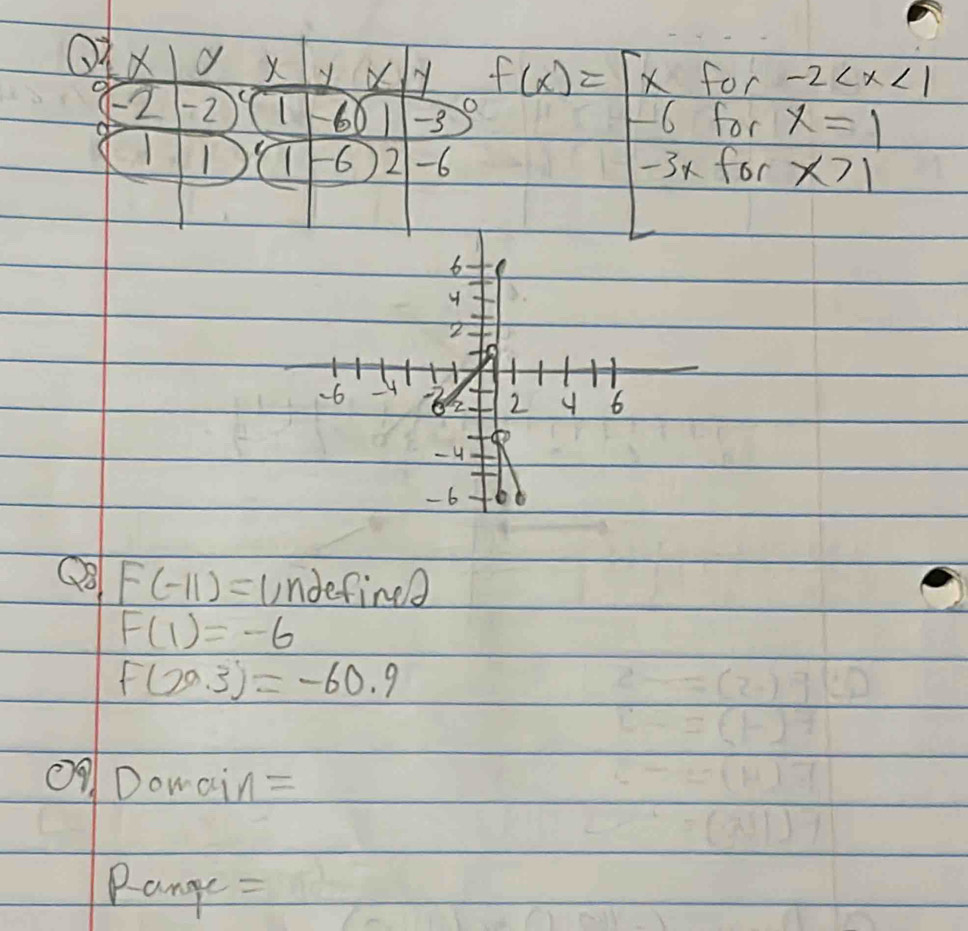 Q7 x | y x | y x | y f(x) = [ x for -2 < x < 1
-2 | -2 1 | -6 1 | -3 -6 for x = 1
1 | 1 1 | -6 2 | -6 -3x for x > 1
6
4
2
-6 -4 -2 2 4 6
-2
-4
-6
Q8, F(-11) = Undefined
F(1) = -6
F(20.3) = -60.9
Q9, Domain =
Range =